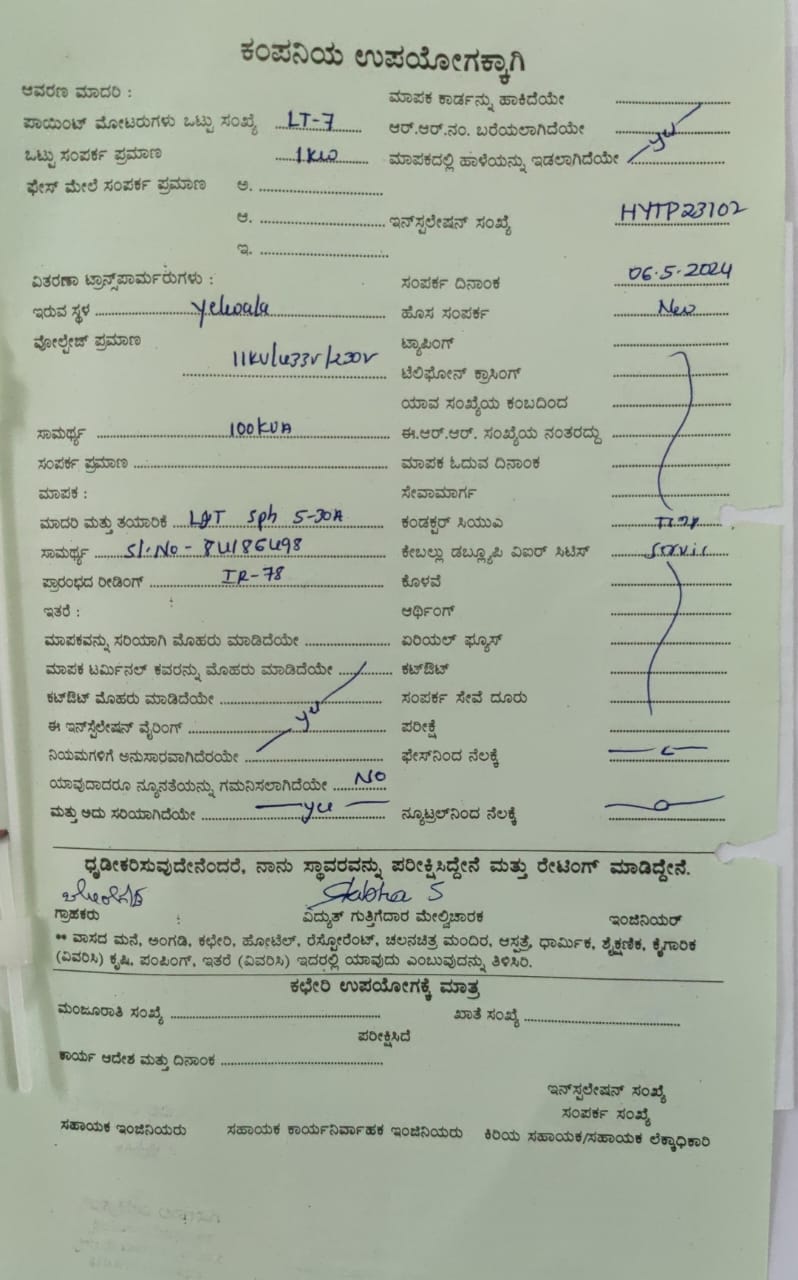 ಕಂಪನಿಯ ಉಪಯೋಗಕ್ಕಾಗಿ
ಆವರಣ ಮಾದರಿ : ಮಾಪಕ ಕಾರ್ಡನ್ನು ಹಾಕಿದೆಯೇ
ಪಾಯಿಂಟ್ ಮೋಟರುಗಳು ಒಟ್ಟು ಸಂಖ್ಯೆ LT-7 ಆರ್.ಆರ್.ನಂ. ಬರೆಯಲಾಗಿದೆಯೇ
ಒಟ್ಟು ಸಂಪರ್ಕ ಪ್ರಮಾಣ 1KW ಮಾಪಕದಲ್ಲಿ ಹಾಳೆಯನ್ನು ಇಡಲಾಗಿದೆಯೇ
ಫೇಸ್ ಮೇಲೆ ಸಂಪರ್ಕ ಪ್ರಮಾಣ ಅ.
ಆ. ಇನ್‌ಸ್ಟಲೇಷನ್ ಸಂಖ್ಯೆ HYTP23102
ಇ.
ವಿತರಣಾ ಟ್ರಾನ್ಸ್‌ಪಾರ್ಮರುಗಳು : ಸಂಪರ್ಕ ದಿನಾಂಕ 06.5.2024
ಇರುವ ಸ್ಥಳ Yelwala ಹೊಸ ಸಂಪರ್ಕ New
ವೋಲ್ಟೇಜ್ ಪ್ರಮಾಣ 11KV/433V/230V ಟ್ಯಾಪಿಂಗ್
ಟೆಲಿಫೋನ್ ಕ್ರಾಸಿಂಗ್
ಯಾವ ಸಂಖ್ಯೆಯ ಕಂಬದಿಂದ
ಸಾಮರ್ಥ್ಯ 100KVA ಈ.ಆರ್.ಆರ್. ಸಂಖ್ಯೆಯ ನಂತರದ್ದು
ಸಂಪರ್ಕ ಪ್ರಮಾಣ ಮಾಪಕ ಓದುವ ದಿನಾಂಕ
ಮಾಪಕ : ಸೇವಾಮಾರ್ಗ
ಮಾದರಿ ಮತ್ತು ತಯಾರಿಕೆ L&T Sph 5-30A ಕಂಡಕ್ಟರ್ ಸಿಯುಎ
ಸಾಮರ್ಥ್ಯ Sl.No - 84186498 ಕೇಬಲ್ಲು ಡಬ್ಲ್ಯೂಪಿ ವಿಐರ್ ಸಿಟಿಸ್
ಪ್ರಾರಂಭದ ರೀಡಿಂಗ್ IR-78 ಕೊಳವೆ
ಇತರೆ : ಆರ್ಥಿಂಗ್
ಮಾಪಕವನ್ನು ಸರಿಯಾಗಿ ಮೊಹರು ಮಾಡಿದೆಯೇ ಏರಿಯಲ್ ಫ್ಯೂಸ್
ಮಾಪಕ ಟರ್ಮಿನಲ್ ಕವರನ್ನು ಮೊಹರು ಮಾಡಿದೆಯೇ ಕಟ್‌ಔಟ್
ಕಟ್‌ಔಟ್ ಮೊಹರು ಮಾಡಿದೆಯೇ ಸಂಪರ್ಕ ಸೇವೆ ದೂರು
ಈ ಇನ್‌ಸ್ಟಲೇಷನ್ ವೈರಿಂಗ್ ಪರೀಕ್ಷೆ
ನಿಯಮಗಳಿಗೆ ಅನುಸಾರವಾಗಿದೆರಯೇ ಫೇಸ್‌ನಿಂದ ನೆಲಕ್ಕೆ
ಯಾವುದಾದರೂ ನ್ಯೂನತೆಯನ್ನು ಗಮನಿಸಲಾಗಿದೆಯೇ NO
ಮತ್ತು ಅದು ಸರಿಯಾಗಿದೆಯೇ ನ್ಯೂಟ್ರಲ್‌ನಿಂದ ನೆಲಕ್ಕೆ
ಧೃಡೀಕರಿಸುವುದೇನೆಂದರೆ, ನಾನು ಸ್ಥಾವರವನ್ನು ಪರೀಕ್ಷಿಸಿದ್ದೇನೆ ಮತ್ತು ರೇಟಿಂಗ್ ಮಾಡಿದ್ದೇನೆ.
ಗ್ರಾಹಕರು ವಿದ್ಯುತ್ ಗುತ್ತಿಗೆದಾರ ಮೇಲ್ವಿಚಾರಕ ಇಂಜಿನಿಯರ್
** ವಾಸದ ಮನೆ, ಅಂಗಡಿ, ಕಛೇರಿ, ಹೋಟೆಲ್, ರೆಸ್ಟೋರೆಂಟ್, ಚಲನಚಿತ್ರ ಮಂದಿರ, ಆಸ್ಪತ್ರೆ, ಧಾರ್ಮಿಕ, ಶೈಕ್ಷಣಿಕ, ಕೈಗಾರಿಕ
(ವಿವರಿಸಿ) ಕೃಷಿ, ಪಂಪಿಂಗ್, ಇತರೆ (ವಿವರಿಸಿ) ಇದರಲ್ಲಿ ಯಾವುದು ಎಂಬುವುದನ್ನು ತಿಳಿಸಿರಿ.
ಕಛೇರಿ ಉಪಯೋಗಕ್ಕೆ ಮಾತ್ರ
ಮಂಜೂರಾತಿ ಸಂಖ್ಯೆ ಖಾತೆ ಸಂಖ್ಯೆ
ಪರೀಕ್ಷಿಸಿದೆ
ಕಾರ್ಯ ಆದೇಶ ಮತ್ತು ದಿನಾಂಕ
ಇನ್‌ಸ್ಟಲೇಷನ್ ಸಂಖ್ಯೆ
ಸಂಪರ್ಕ ಸಂಖ್ಯೆ
ಸಹಾಯಕ ಇಂಜಿನಿಯರು ಸಹಾಯಕ ಕಾರ್ಯನಿರ್ವಾಹಕ ಇಂಜಿನಿಯರು ಕಿರಿಯ ಸಹಾಯಕ/ಸಹಾಯಕ ಲೆಕ್ಕಾಧಿಕಾರಿ